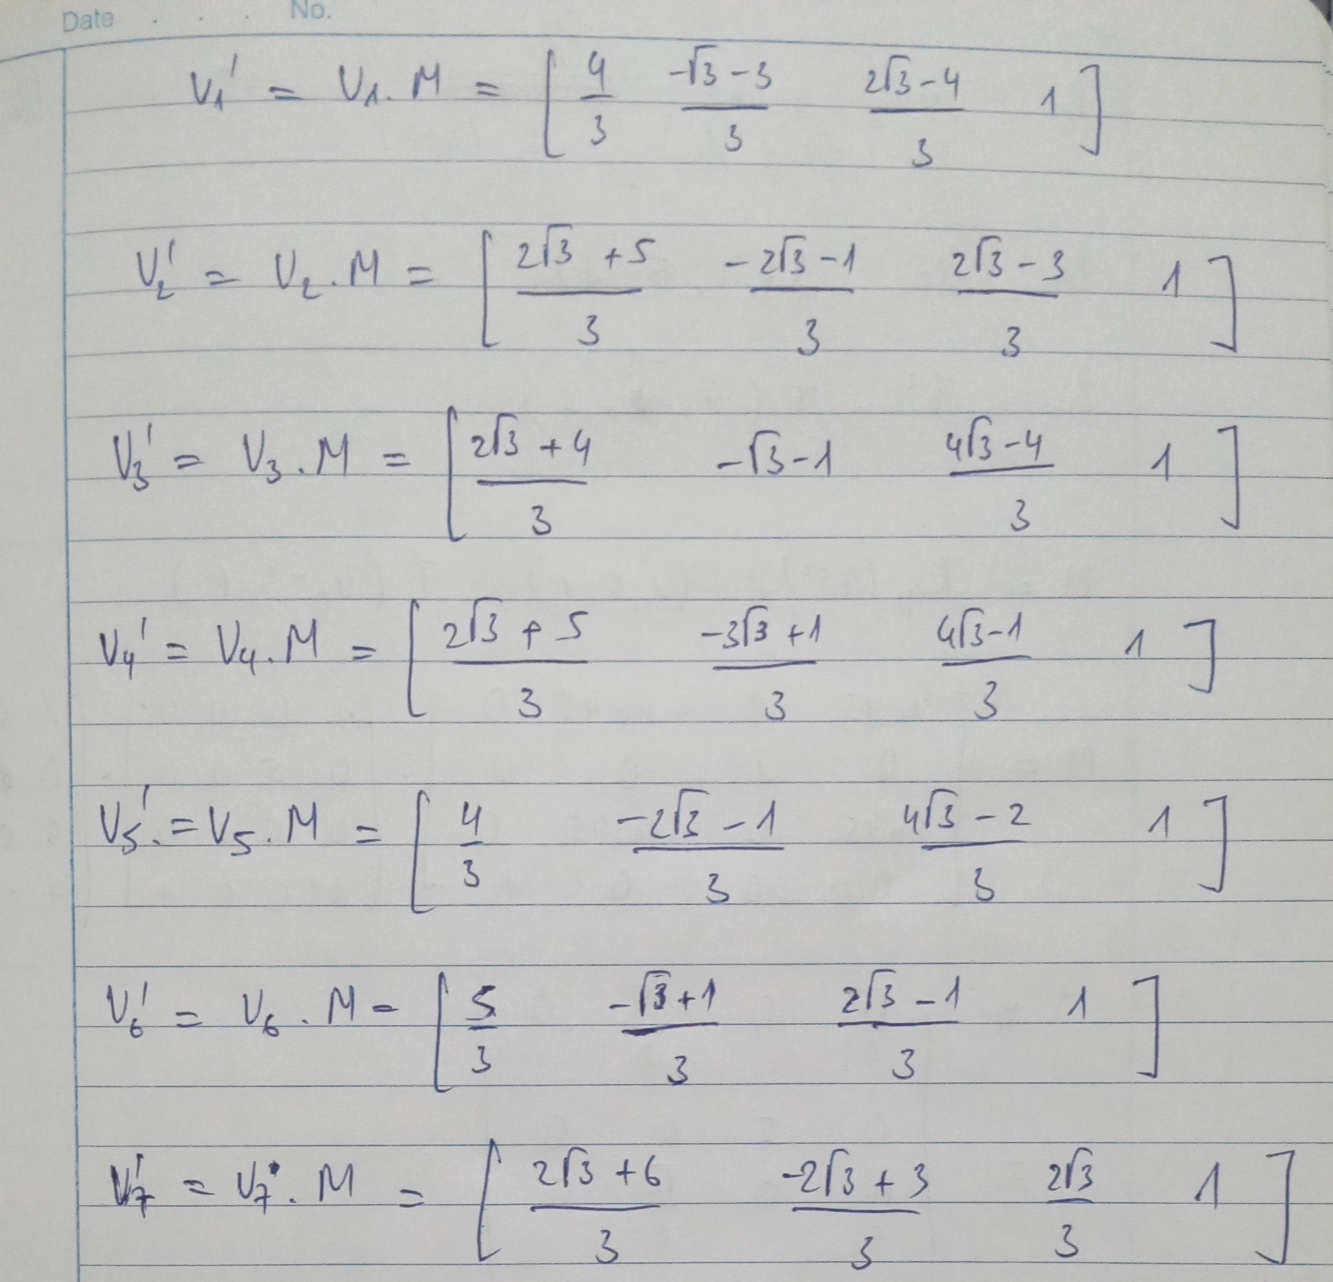 Date . . . No.
V₁' = V₁. M = [ 4/3 (-√3 - 3)/3 (2√3 - 4)/3 1 ]
V₂' = V₂. M = [ (2√3 + 5)/3 (-2√3 - 1)/3 (2√3 - 3)/3 1 ]
V₃' = V₃. M = [ (2√3 + 4)/3 -√3 - 1 (4√3 - 4)/3 1 ]
V₄' = V₄. M = [ (2√3 + 5)/3 (-3√3 + 1)/3 (4√3 - 1)/3 1 ]
V₅'. = V₅. M = [ 4/3 (-2√3 - 1)/3 (4√3 - 2)/3 1 ]
V₆' = V₆. M = [ 5/3 (-√3 + 1)/3 (2√3 - 1)/3 1 ]
V₇' = V₇. M = [ (2√3 + 6)/3 (-2√3 + 3)/3 2√3/3 1 ]